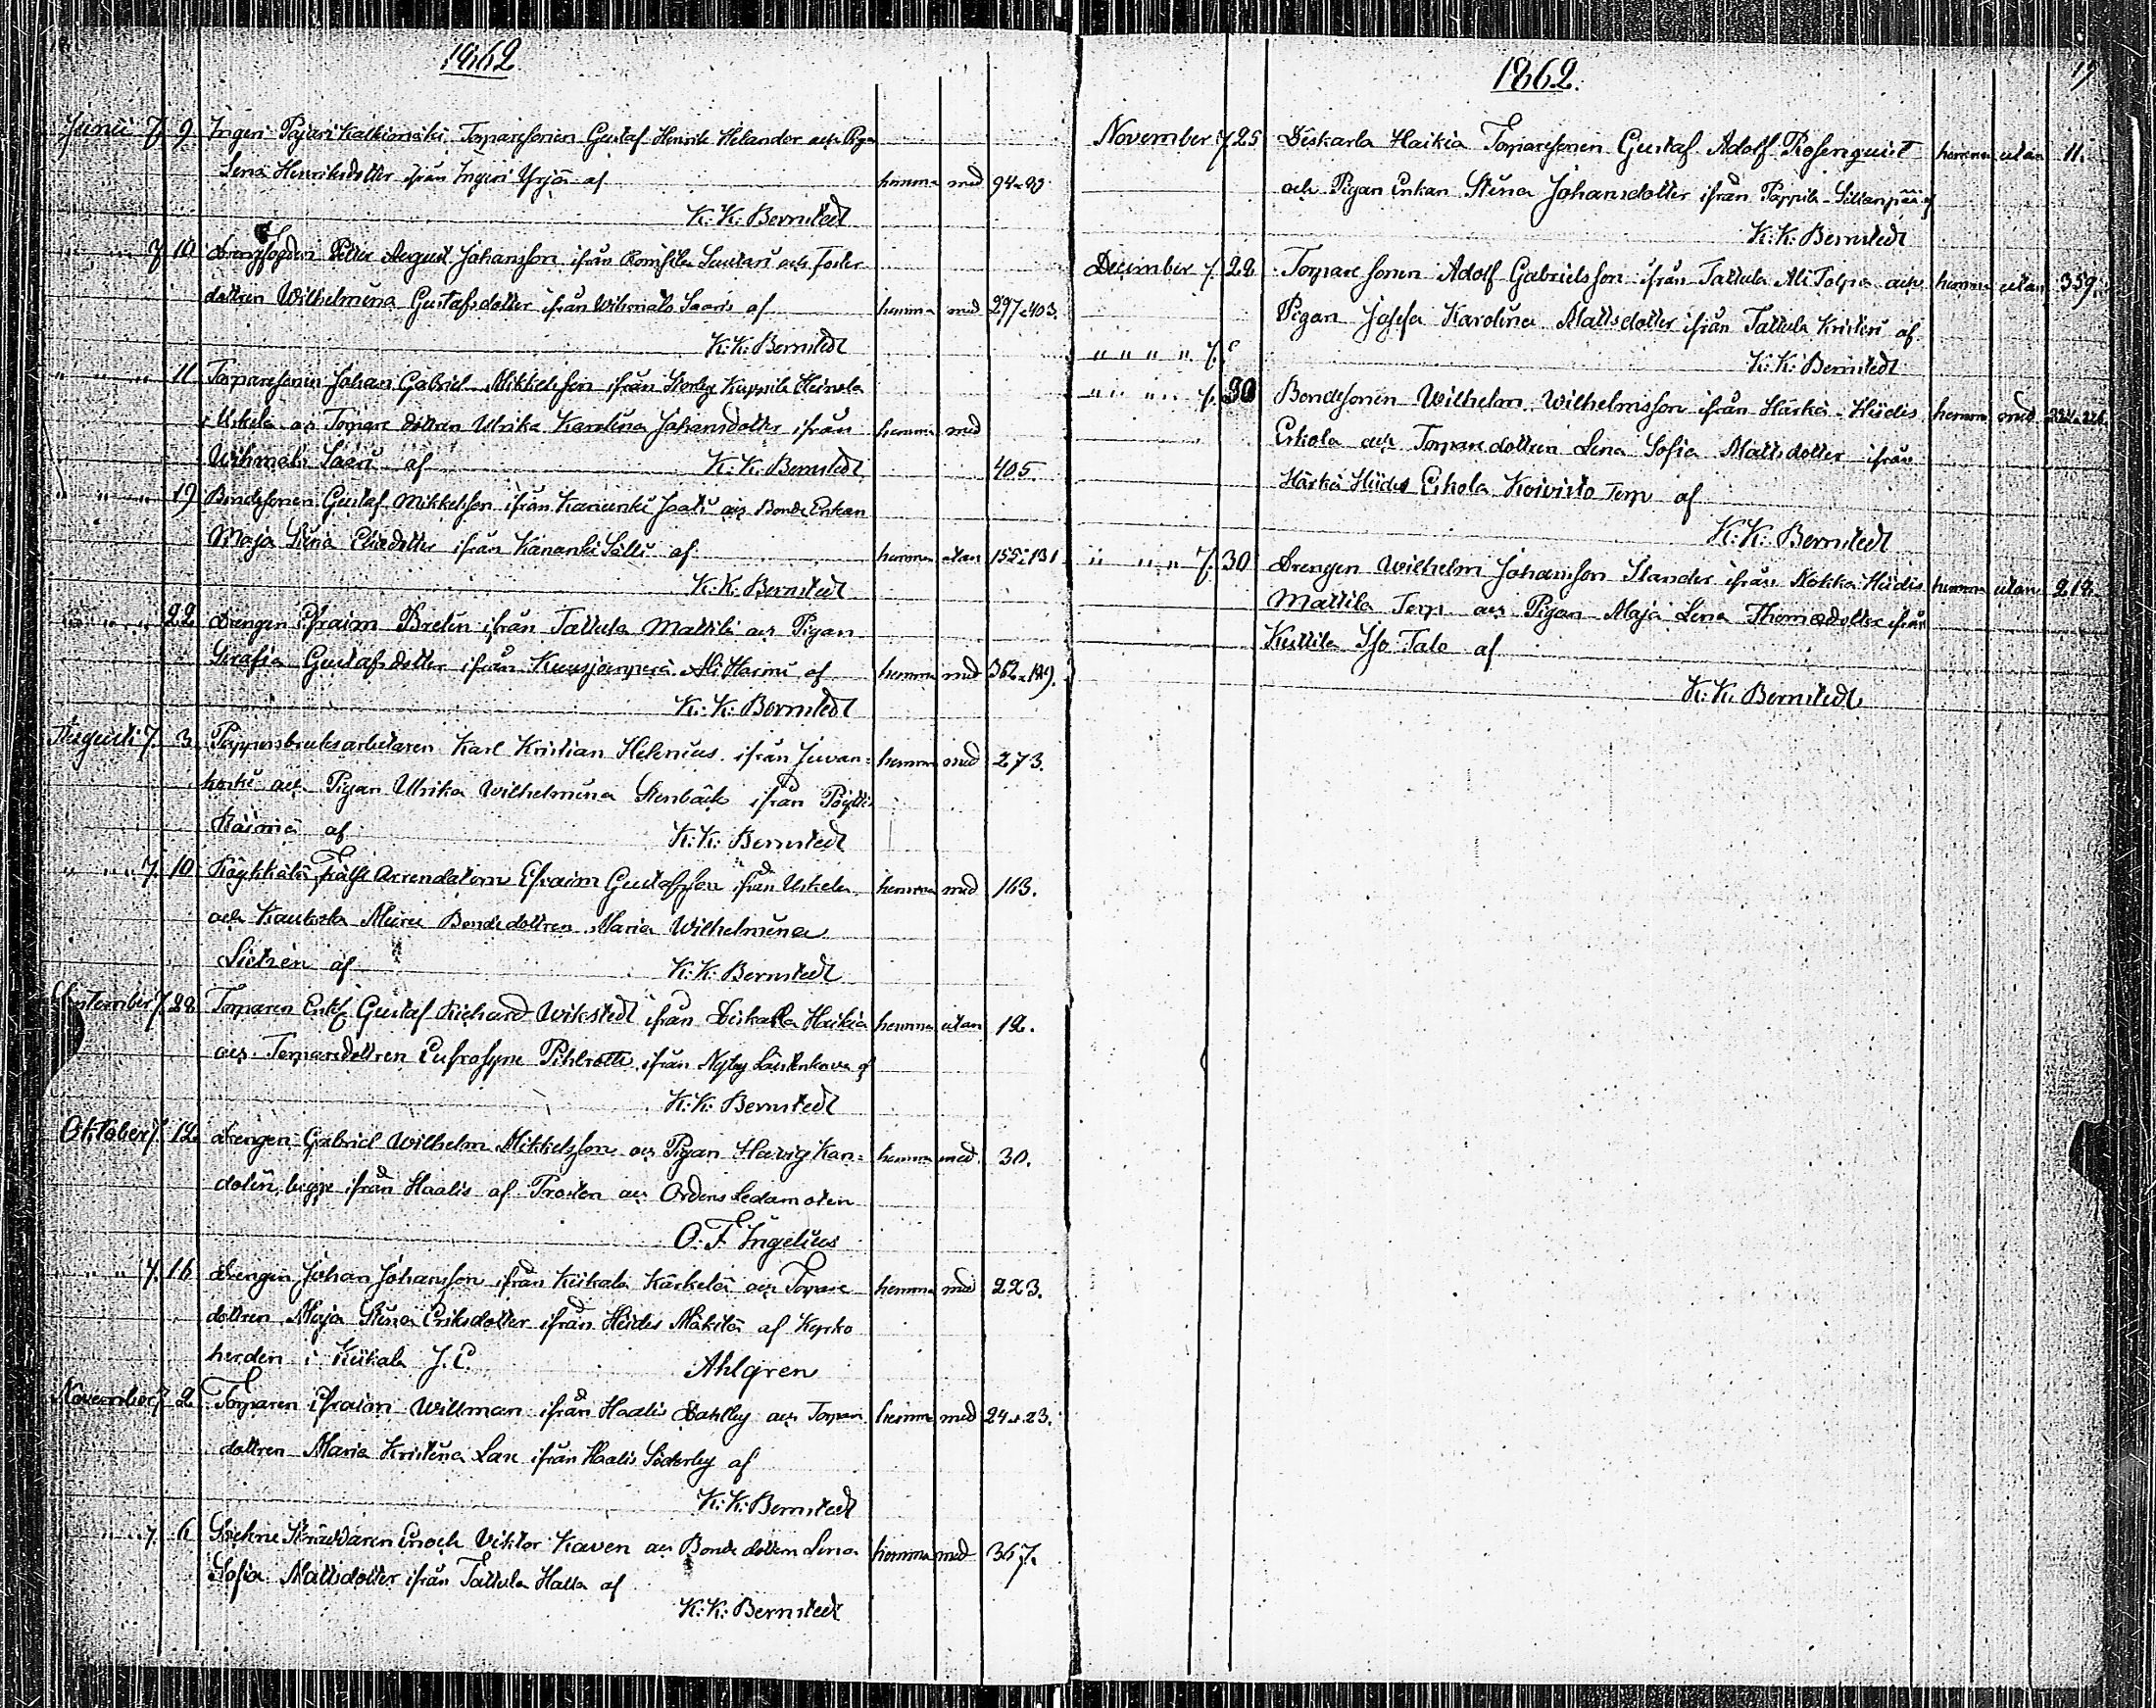 1862
Junii 7. 9 Ingeri Pajari Kalliomäki Torparesonen Gustaf Henrik Helander och Pigan
Lena Henriksdotter ifrån Ingeri Yrjä af hemma med 94.
K: K: Bernstedt
10 Drengfogden Petter August Johansson ifrån Suutari och Foster
dottren Wilhelmina Gustafsdotter ifrån Wihmalo Saari af hemma med 297.403.
K: K: Bernstedt
" " " 11 Torparesonen Johan Gabriel Mikkelsson ifrån Storby Kuppila Heinola
i Uskela och Torpare dottren Ulrika Karolina Johansdotter ifrån hemma med
Wihmalo Saari af K: K: Bernstedt 405.
" " " 19 Bondesonen Gustaf Mikkelsson ifrån Kanunki och Bonde Enkan
Maja Stina dotter ifrån Kananki Sälli af hemma utan 155.131
K: K: Bernstedt
" " " 22 Drengen Efraim Brelin ifrån Tattula Mattila och Pigan
Serafia Gustafsdotter ifrån Kuusjoenperä Ali Harmi af hemma med 362.149.
K: K: Bernstedt
Augusti 7. 3 Pappersbruksarbetaren Karl Kristian Helenius ifrån Juvan= hemma med 273.
koski och Pigan Ulrika Wilhelmina Stenbäck ifrån Pöytiö
af K: K: Bernstedt
" " 7. 10 Frälse Arrendatorn Efraim Gustafsson ifrån Uskela hemma med 163.
och Kaukola Muru Bondedottren Maria Wilhelmina
af K: K: Bernstedt
September 7. 28 Torparen Enkl. Gustaf Richard Wikstedt ifrån Diskarla Haikia hemma utan 12.
och Torparedottren Eufrosyne ifrån Nyby af
K: K: Bernstedt
Oktober 7. 12 Drengen Gabriel Wilhelm Mikkelsson och Pigan Hedvig Kan= hemma med 30.
dolin, begge ifrån Haalis af Prosten och Ordens Ledamoten
O. F. Ingelius
" " 7. 16 Drengen Johan Johansson ifrån Kiikala Kärkelä och Torpare hemma med 223.
dottren Maja Stina Eriksdotter ifrån Hiidis Mäkilä af Kyrko
herden i Kiikala J. E. Ahlgren
November 7. 2 Torparen Efraim Willman ifrån Haalis Dahlby och Torpare hemma med 24.23.
dottren Maria Kristina Lax ifrån Haalis Söderby af
K: K: Bernstedt
" " 7. 6 Sockne Skräddaren Enoch Viktor Kaven och Bonde dottren Lena hemma med 367.
Sofia Mattsdotter ifrån Tattula Halla af
K: K: Bernstedt
1862.
17
November 7. 25 Diskarla Haikia Torparesonen Gustaf Adolf Rosenquist hemma utan 11.
och Pigan Enkan Stina Johansdotter ifrån Pappila Sillanpää af
K: K: Bernstedt
December 7. 28 Torpare sonen Adolf Gabrielsson ifrån Tattula Ali Tolpa och hemma utan 359.
Pigan Josefa Karolina Mattsdotter ifrån Tattula Krister af
" " " " 7.
K: K: Bernstedt
" " " " 7. 30 Bondesonen Wilhelm Wilhelmsson ifrån Härkä Hiidis hemma med
Eskola och Torpare dottren Lena Sofia Mattsdotter ifrån
Härkä Hiidis Eskola Koivisto Torp af
K: K: Bernstedt
" " " 7. 30 Drengen Wilhelm Johansson Stander ifrån Kokka Hiidis hemma utan 212.
Mattila Torp och Pigan Maja Lena Thomasdotter ifrån
Kuttila Iso Talo af
K: K: Bernstedt